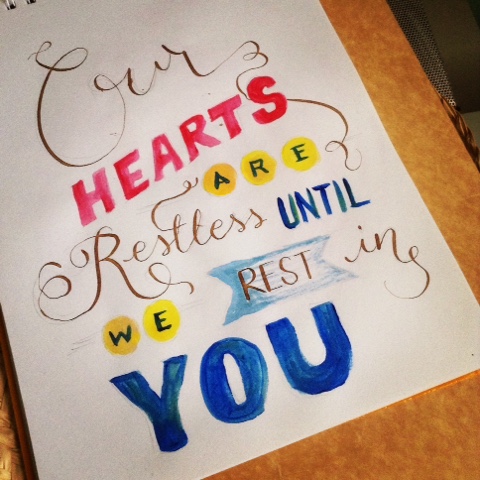 Our
HEARTS
ARE
Restless UNTIL
WE REST in
YOU